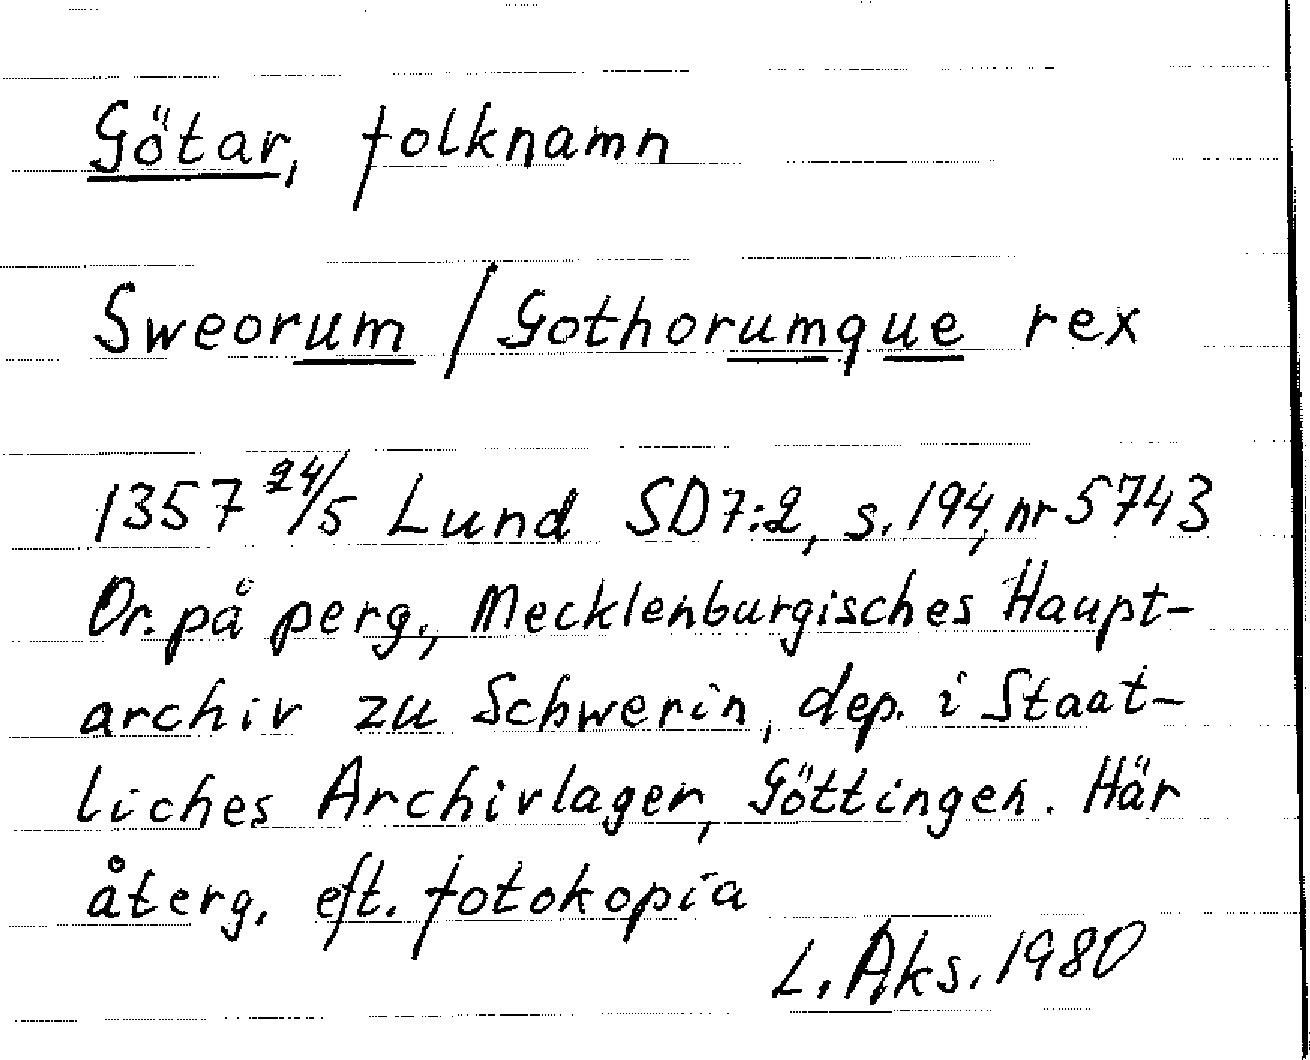 Götar, folknamn
Sweorum / Gothorumque rex
1357 24/5 Lund SD7:2, s. 194, nr 5743
Or. på perg., Mecklenburgisches Haupt-
archiv zu Schwerin, dep. i Staat-
liches Archivlager, Göttingen. Här
återg. eft. fotokopia
L. Aks. 1980